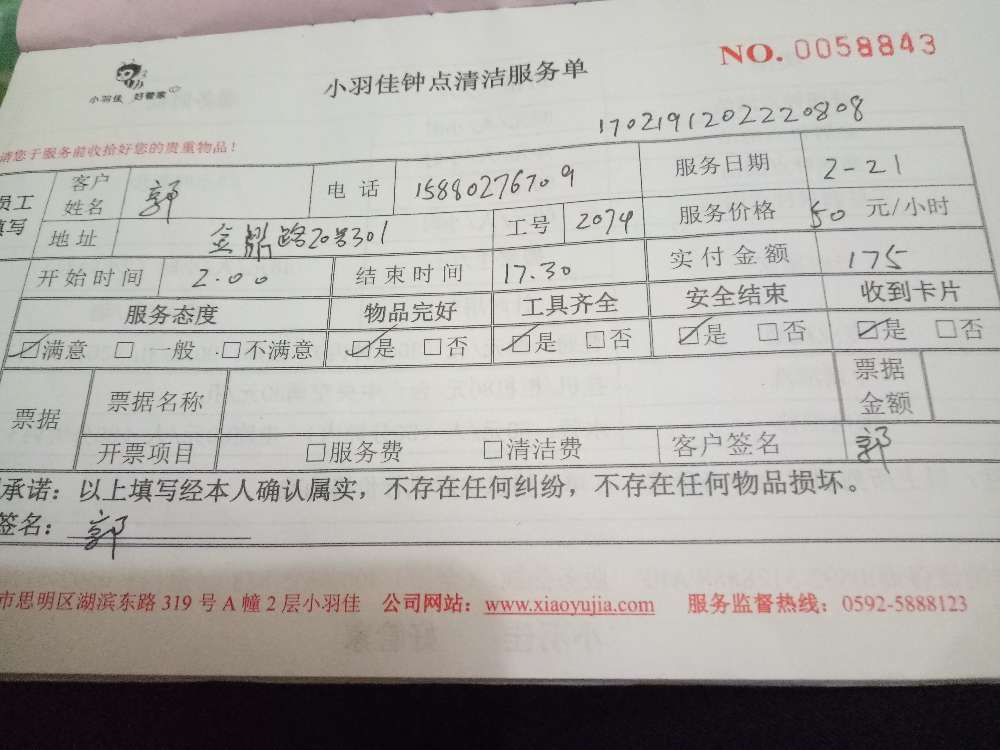 小羽佳 好管家
小羽佳钟点清洁服务单
NO. 0058843
1702191202220808
请您于服务前收拾好您的贵重物品！
员工填写
客户姓名 郭 电话 15880276709 服务日期 2-21
地址 金鼎路20号301 工号 2074 服务价格 50 元/小时
开始时间 2.00 结束时间 17.30 实付金额 175
服务态度 物品完好 工具齐全 安全结束 收到卡片
☑满意 □一般 □不满意 ☑是 □否 ☑是 □否 ☑是 □否 ☑是 □否
票据 票据名称 票据金额
开票项目 □服务费 □清洁费 客户签名 郭
承诺：以上填写经本人确认属实，不存在任何纠纷，不存在任何物品损坏。
签名：郭
市思明区湖滨东路 319 号 A 幢 2 层小羽佳 公司网站：www.xiaoyujia.com 服务监督热线：0592-5888123